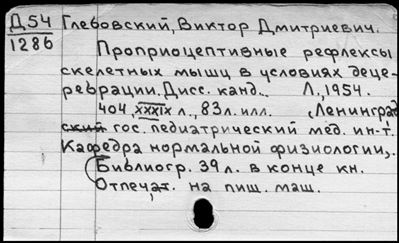 Д54 Глебовский, Виктор Дмитриевич.
1286
Проприоцептивные рефлексы
скелетных мышц в условиях деце-
ребрации. Дисс. канд.. Л., 1954.
404, XXXIX л., 83 л. илл. (Ленинград
ский гос. педиатрический мед. ин-т.
Кафедра нормальной физиологии).
Библиогр. 39 л. в конце кн.
Отпечат. на пиш. маш.